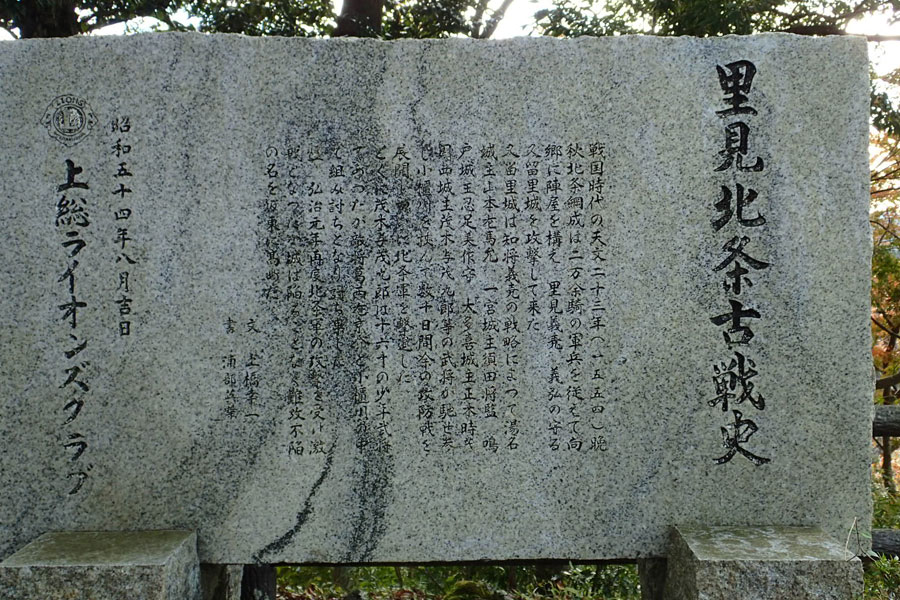 里見北条古戦史
戦国時代の天文二十三年(一五五四)晩
秋北条綱成は二万余騎の軍兵を従えて向
郷に陣屋を構え 里見義堯 義弘の守る
久留里城を攻撃して来た
久留里城は知将義堯の戦略によって湯名
城主山本左馬允 一宮城主須田将監 鳴
戸城主忍足美作守 大多喜城主正木時茂
西城主茂木与茂九郎等の武将が馳せ参
じ小櫃川を挟んで数十日間余の攻防戦を
展開し 北条軍を撃退した
とくに茂木与茂九郎は十六才の少年武将
であったが敵将葛西 と小櫃川の中
で組み討ちとなり
弘治元年再度北条軍の攻撃を受け激
戦となったが城は陥ることなく難攻不陥
の名を坂東に高めた
文 上橋幸一
書
昭和五十四年八月吉日
LIONS
上総ライオンズクラブ